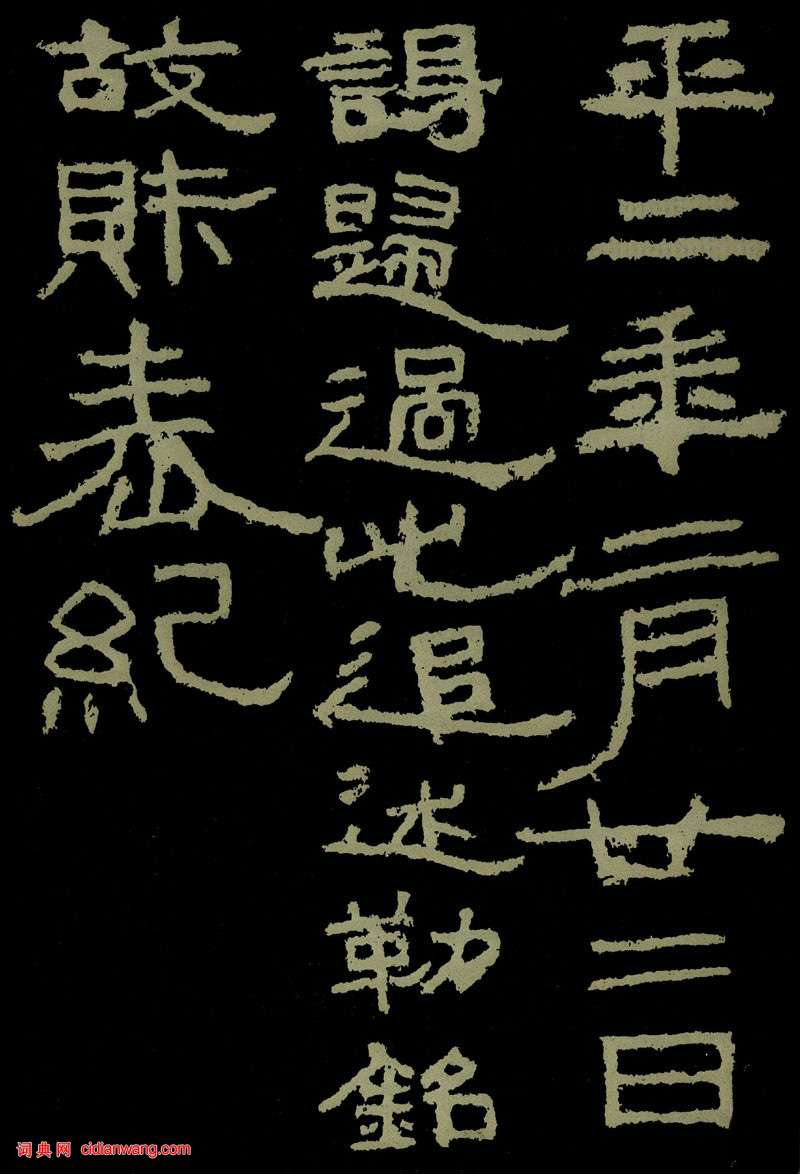 平二年二月廿二日
謁歸過此追述勒銘
故財表紀
词典网 cidianwang.com